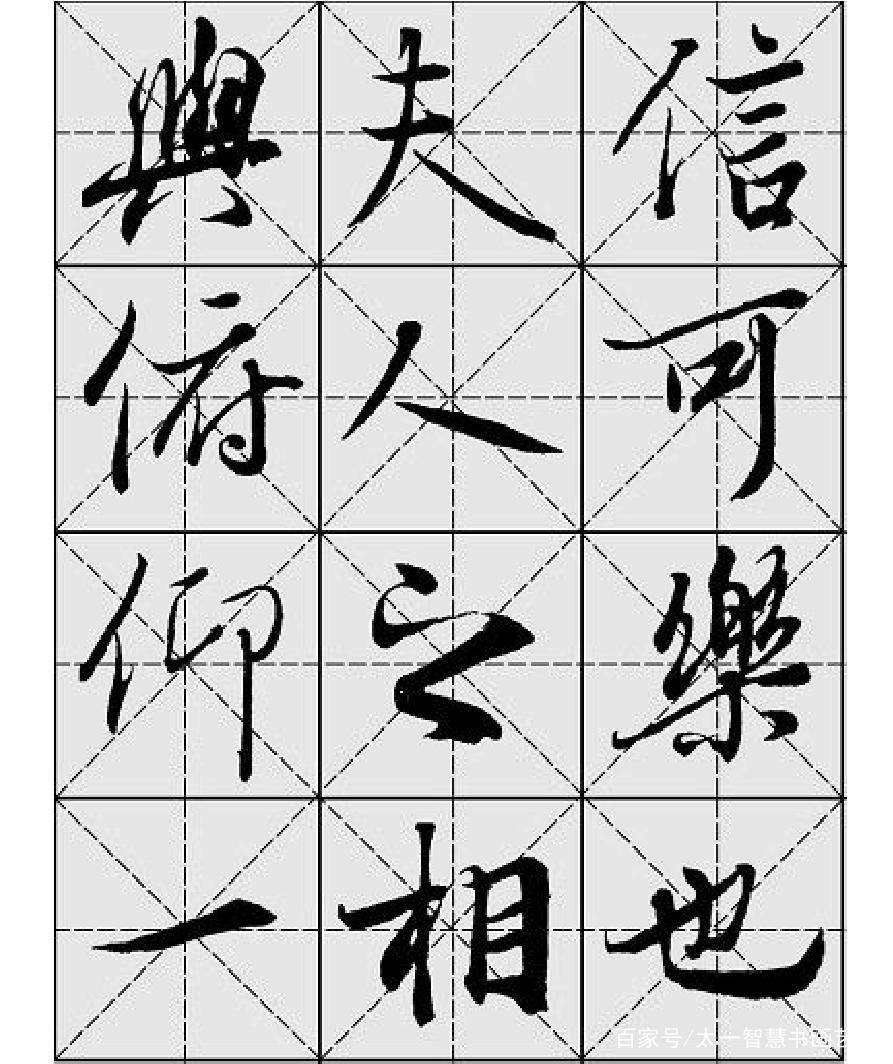 信可樂也
夫人之相
與俯仰一
百家号/太一智慧书画